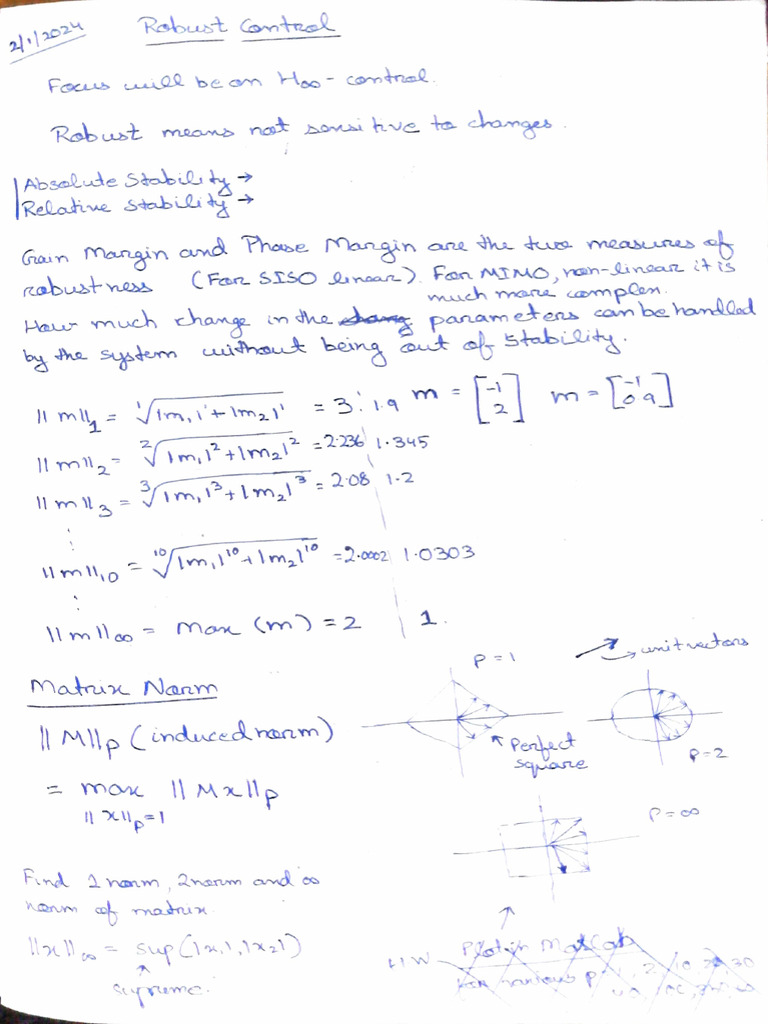 2/1/2024
Robust Control
Focus will be on H∞ - control.
Robust means not sensitive to changes.
Absolute Stability →
Relative Stability →
Gain Margin and Phase Margin are the two measures of
robustness (For SISO linear). For MIMO, non-linear it is
much more complex.
How much change in the parameters can be handled
by the system without being out of stability.
||m||₁ = ¹√|m₁|¹+|m₂|¹ = 3 1.9 m = [-1 2] m = [-1 0.9]
||m||₂ = ²√|m₁|²+|m₂|² = 2.236 1.345
||m||₃ = ³√|m₁|³+|m₂|³ = 2.08 1.2
⋮
||m||₁₀ = ¹⁰√|m₁|¹⁰+|m₂|¹⁰ = 2.0002 1.0303
⋮
||m||∞ = max (m) = 2 1.
P=1
unit vectors
Matrix Norm
||M||p (induced norm)
Perfect
square
P=2
= max ||Mx||p
||x||p=1
P=∞
Find 1 norm, 2 norm and ∞
norm of matrix.
||x||∞ = sup(|x₁|, |x₂|)
supreme.
HW Plot in Matlab
For various p